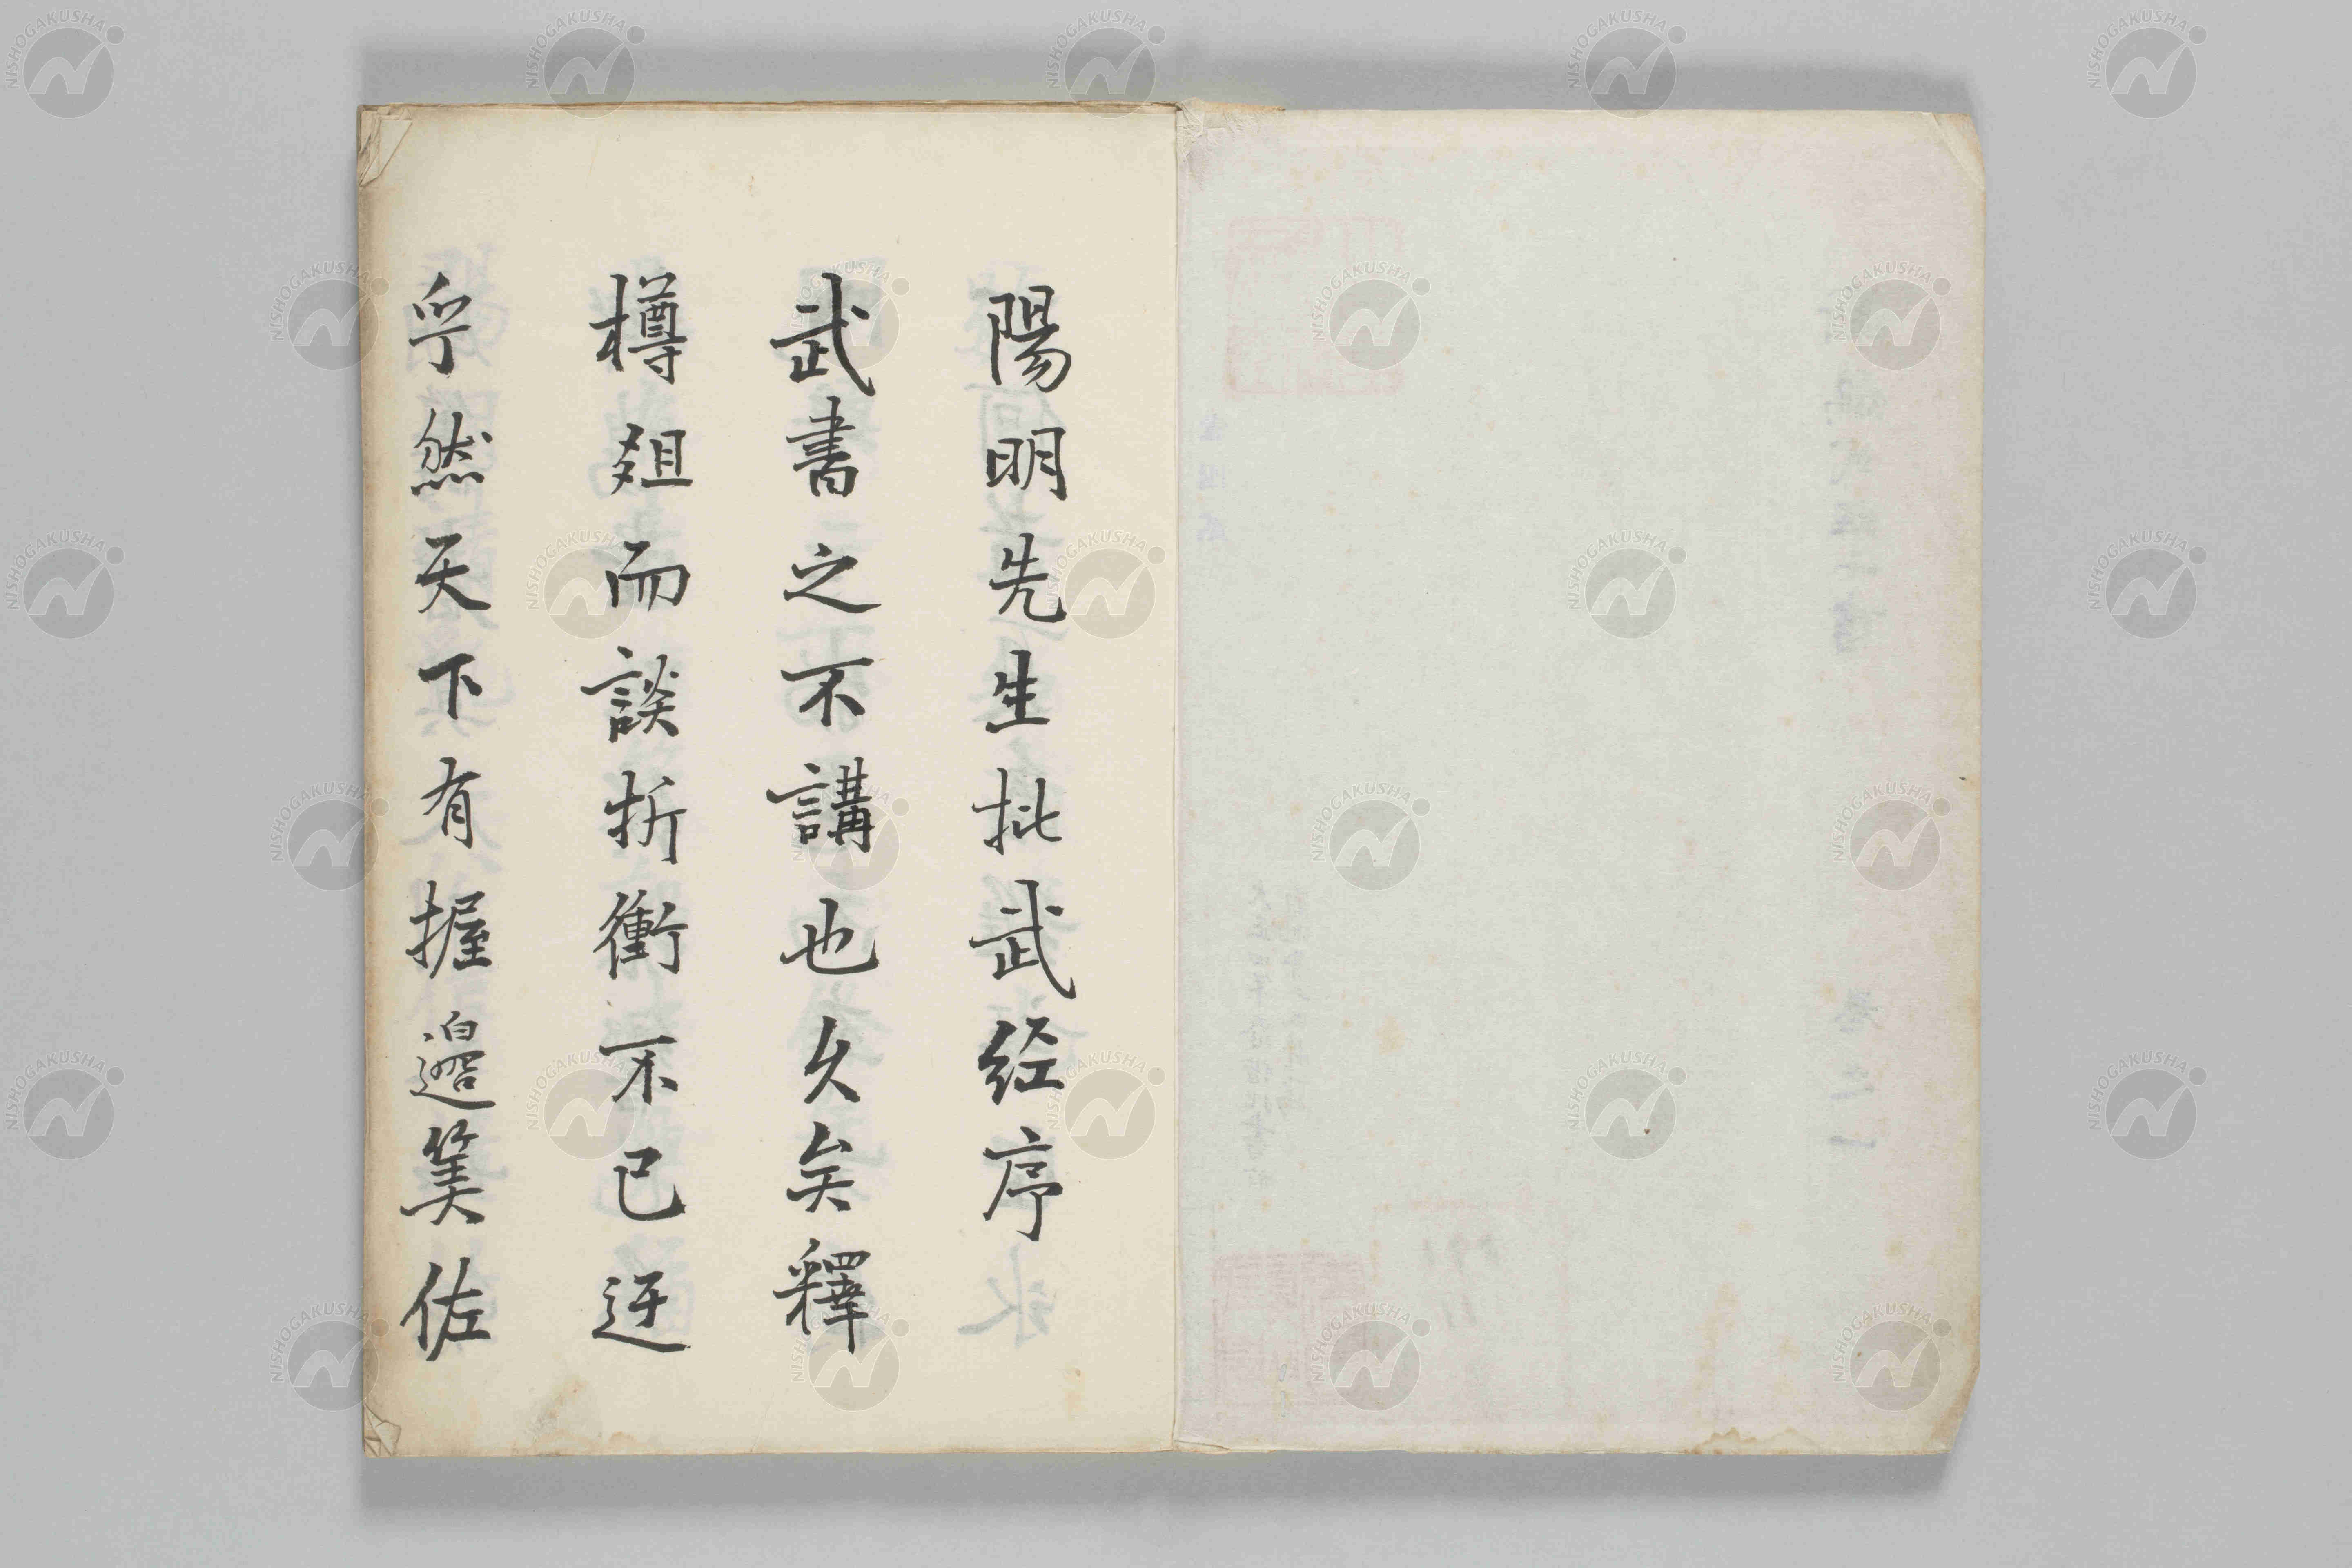 陽明先生批武经序
武書之不講也久矣釋
樽俎而談折衝不已迂
乎然天下有握邊筭佐
NISHOGAKUSHA